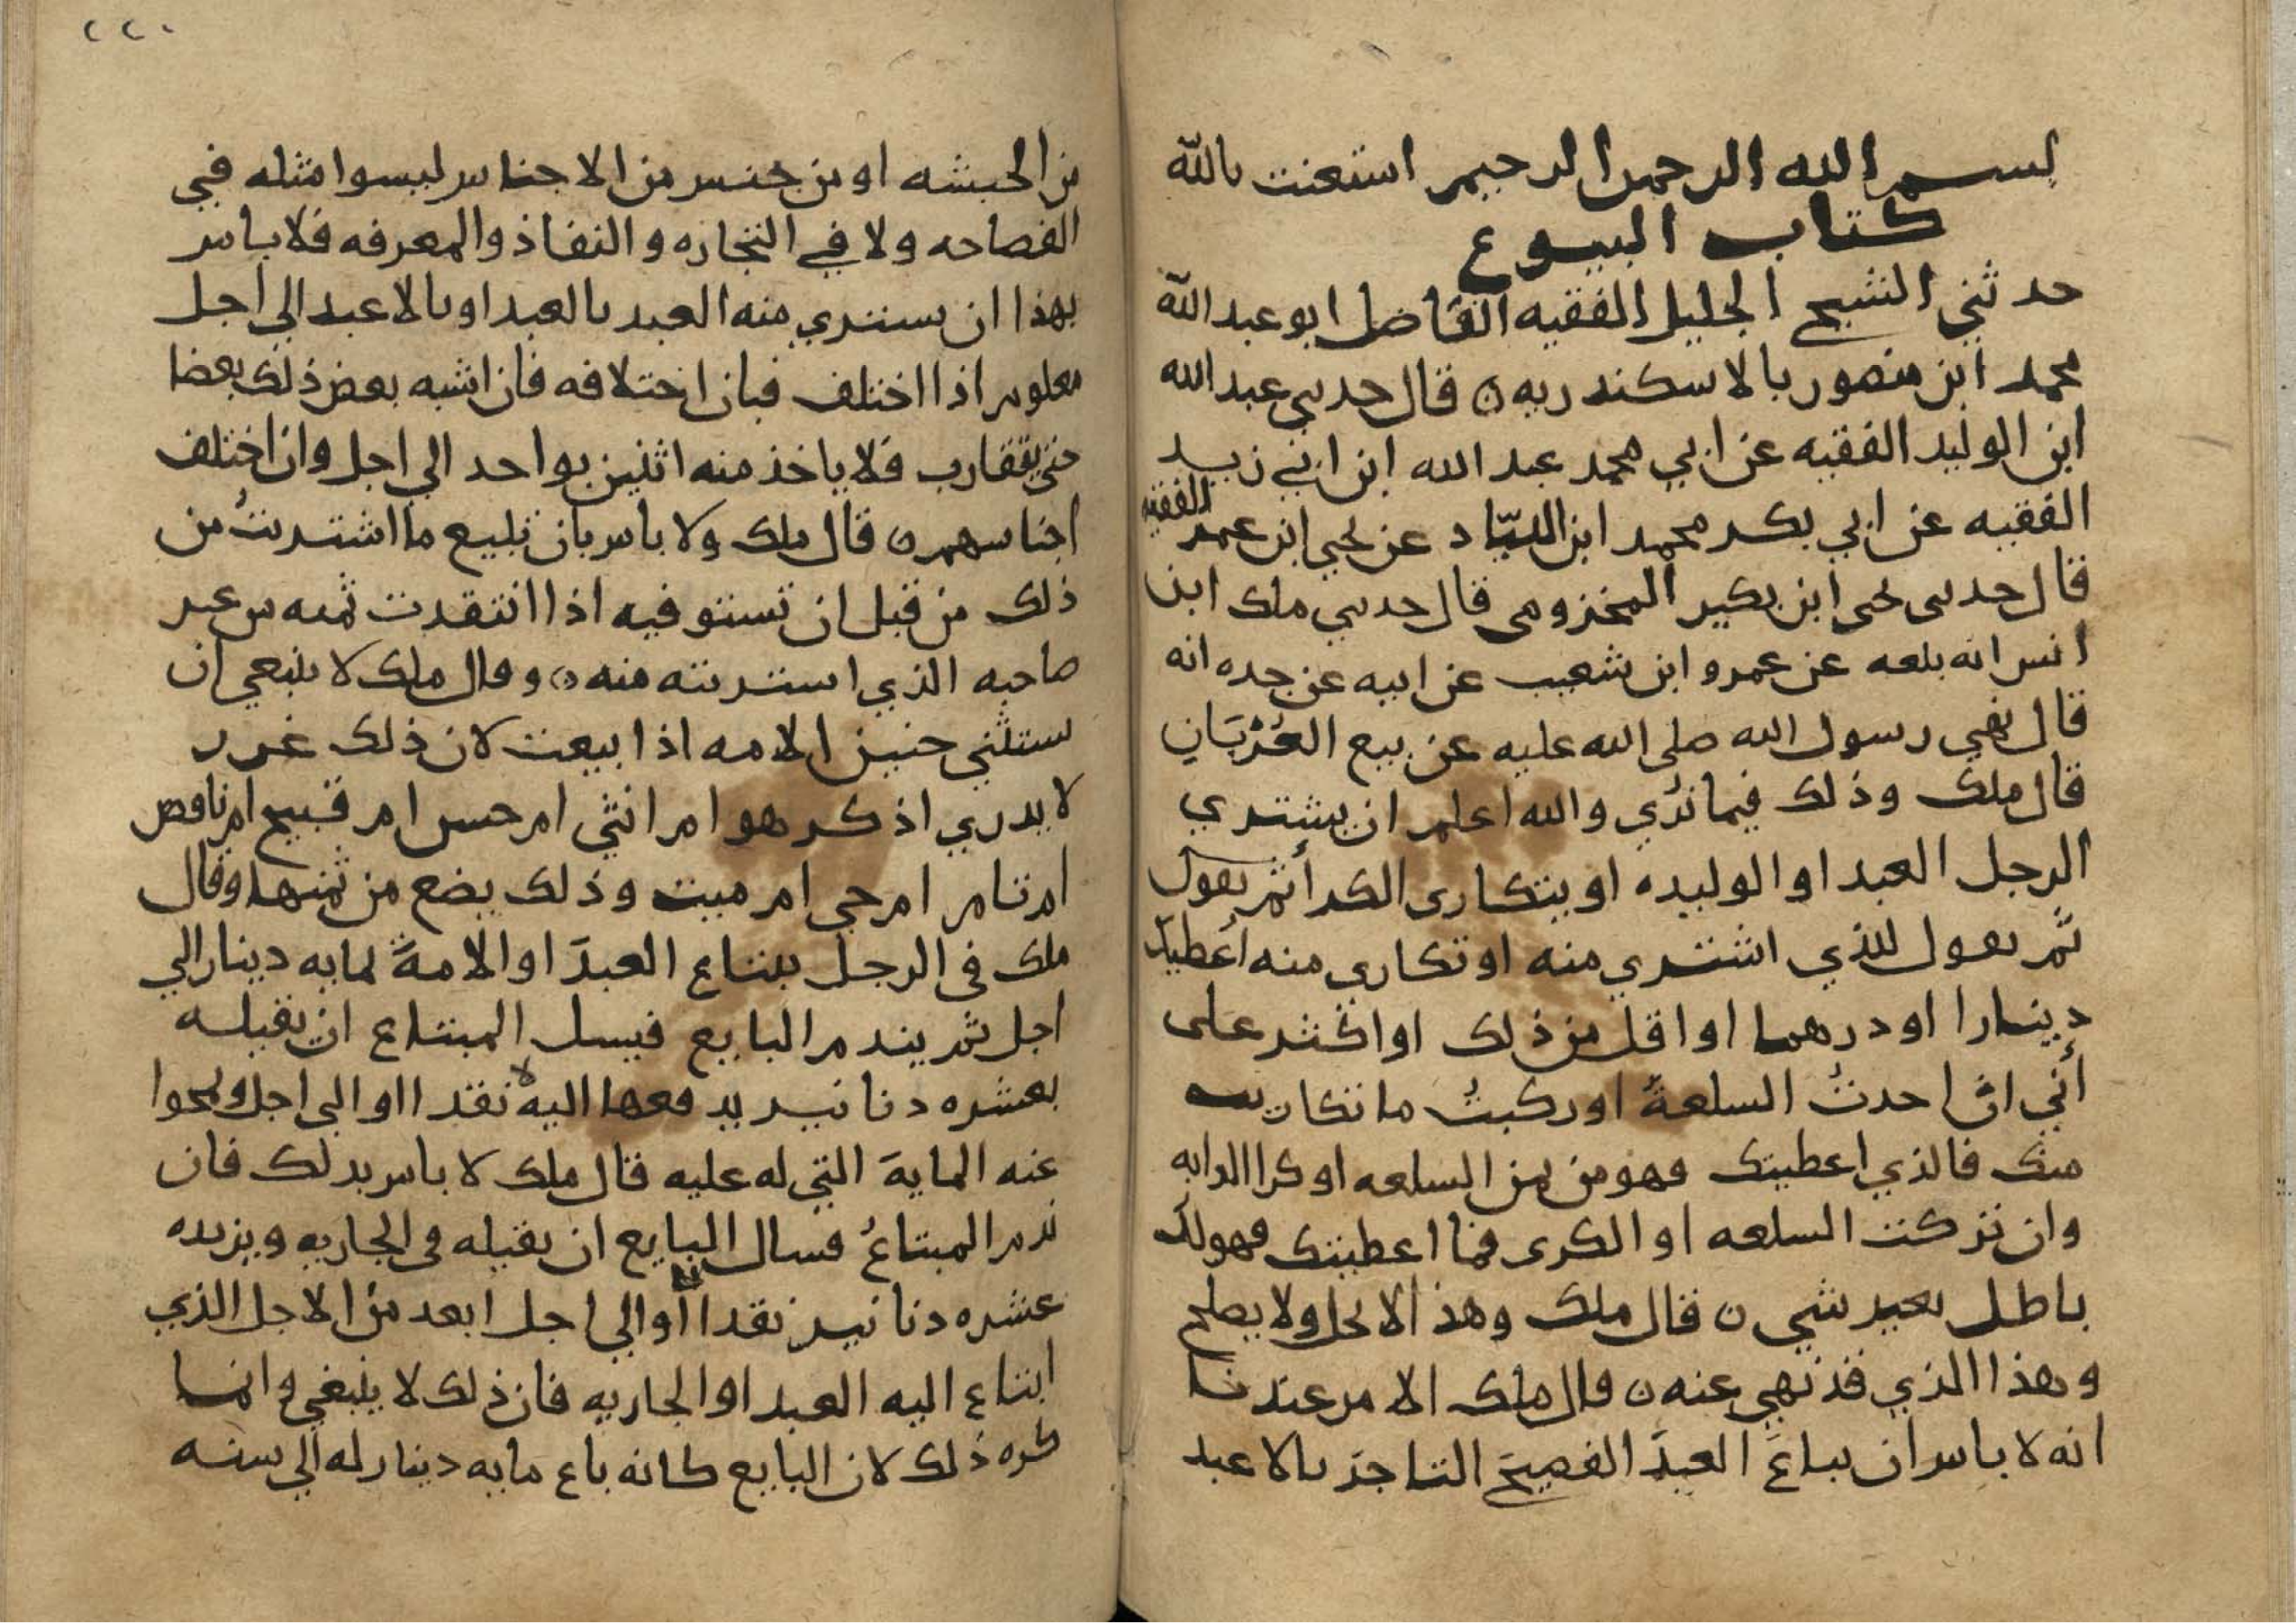 بسم الله الرحمن الرحيم استعنت بالله
كتاب البيوع
حدثني الشيخ الجليل الفقيه القاضل ابو عبد الله
محمد ابن منصور بالاسكندريه ٥ قال حدىي عبد الله
ابن الوليد الفقيه عن ابي محمد عبد الله ابن ابي زيد
الفقيه عن ابي بكر محمد ابن اللبّاد عن يحيي ابن عمر الفقيه
قال حدىى يحى ابن بكير المخزومى قال حدىي ملك ابن
انس انه بلعه عن عمرو ابن شعيب عن ابيه عن جده انه
قال نهي رسول الله صلى الله عليه عن بيع العُرْبَانِ
قال ملك وذلك فيما نُري والله اعلم ان يشتري
الرجل العبد او الوليده او يتكارى الكرا ثم يقول
ثم يعول للذي اشتري منه او تكارى منه اُعطيك
دينارا او درهما او اقل من ذلك او اكثر على
أني ان احدتُ السلعةَ او ركبتُ ما تكاريت
منك فالذي اعطيتك فهو من ثمن السلعه او كرا الدابه
وان تركت السلعه او الكرى فما اعطيتك فهو لك
باطل بعير شي ٥ قال ملك وهذا لا يحل ولا يصلح
وهذا الذي قد نهي عنه ٥ قال ملك الامر عندنا
انه لا باس ان يباعَ العبدَ الفصيحَ التاجرَ بالاعبد
٢٢٠
من الحبشه او من جنس من الاجناس ليسوا مثله في
الفصاحه ولا في التجاره والنفاذ والمعرفه فلا باس
بهذا ان يستري منه العبد بالعبد او بالاعبد الي اجل
معلوم اذا اختلف فبان اختلافه فان اشبه بعض ذلك بعضا
حتي يتقارب فلا ياخذ منه اثنين بواحد الي اجل وان اختلف
اجناسهم ٥ قال ملك ولا باس بان تبيع ما اشتريتُ من
ذلك من قبل ان تستوفيه اذا انتقدت ثمنه من عير
صاحبه الذي استريته منه ٥ وقال ملك لا ينبعي ان
يستثني جنين الامه اذا بيعت لان ذلك غرر
لا يدري اذكر هو ام انثي ام حسن ام قبيح ام ناقص
ام تام ام حي ام ميت وذلك يضع من ثمنها وقال
ملك في الرجل يبتاع العبدَ او الامةَ بمايه دينار الي
اجل ثم يندم البايع فيسل المبتاع ان يقيله
بعشره دنانير يدفعها اليه نقدا او الي اجل ويمحوا
عنه المايةَ التي له عليه قال ملك لا باس بدلك فان
ندم المبتاعُ فسال البايع ان يقيله في الجاريه ويزيده
عشره دنانير نقدا او الي اجل ابعد من الاجل الذي
ابتاع اليه العبد او الجاريه فان ذلك لا ينبغي وانما
كره ذلك لان البايع كانه باع مايه دينار له الي سنه